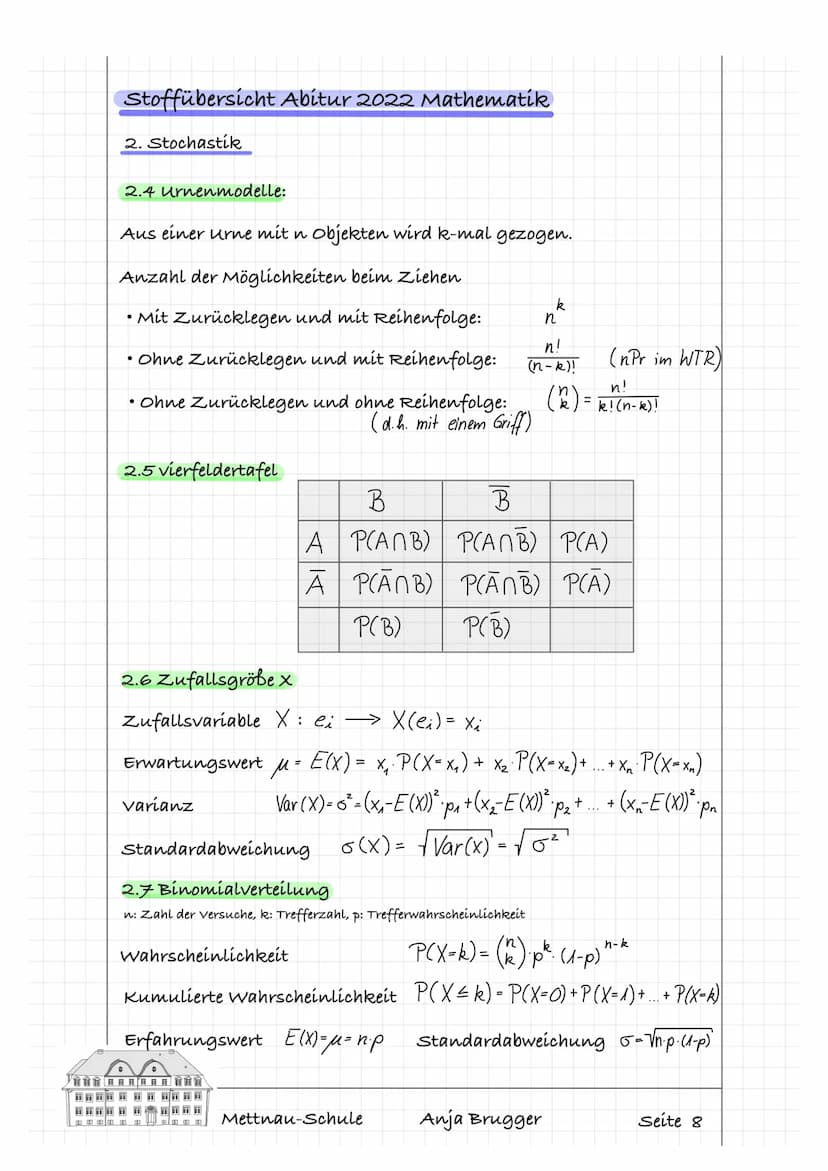 Stoffübersicht Abitur 2022 Mathematik
2. Stochastik
2.4 Urnenmodelle:
Aus einer Urne mit n Objekten wird k-mal gezogen.
Anzahl der Möglichkeiten beim Ziehen
• Mit Zurücklegen und mit Reihenfolge: n^k
• Ohne Zurücklegen und mit Reihenfolge: n!/(n-k)! (nPr im WTR)
• Ohne Zurücklegen und ohne Reihenfolge: (n k) = n!/(k!(n-k)!)
(d.h. mit einem Griff)
2.5 Vierfeldertafel
B B̅
A P(A∩B) P(A∩B̅) P(A)
A̅ P(A̅∩B) P(A̅∩B̅) P(A̅)
P(B) P(B̅)
2.6 Zufallsgröße X
Zufallsvariable X : eᵢ → X(eᵢ) = xᵢ
Erwartungswert μ = E(X) = x₁·P(X=x₁) + x₂·P(X=x₂) + ... + xₙ·P(X=xₙ)
Varianz Var(X) = σ² = (x₁-E(X))²·p₁ + (x₂-E(X))²·p₂ + ... + (xₙ-E(X))²·pₙ
Standardabweichung σ(X) = √Var(X) = √σ²
2.7 Binomialverteilung
n: Zahl der Versuche, k: Trefferzahl, p: Trefferwahrscheinlichkeit
Wahrscheinlichkeit P(X=k) = (n k)·p^k·(1-p)^(n-k)
Kumulierte Wahrscheinlichkeit P(X≤k) = P(X=0) + P(X=1) + ... + P(X=k)
Erfahrungswert E(X) = μ = n·p Standardabweichung σ = √(n·p·(1-p))
Mettnau-Schule Anja Brugger Seite 8